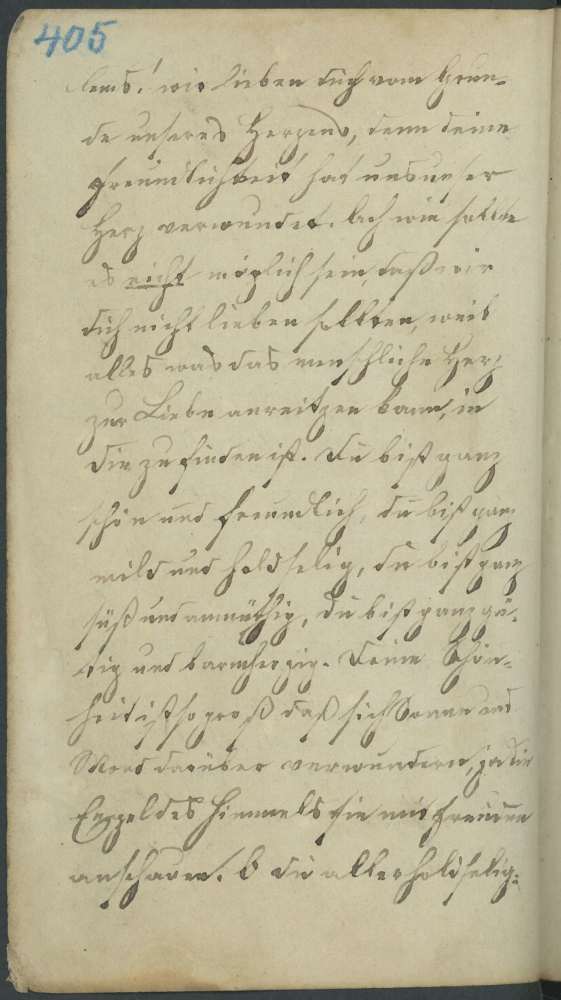 405
lems! wir lieben dich vom Grun-
de unseres Herzens, denn deine
freundlichkeit hat uns unser
Herz verwundet. Ach wie sollte
es nicht möglich sein, daß wir
dich nicht lieben sollten, weil
alles was das menschliche Herz
zur Liebe anreitzen kann, in
dir zu finden ist. Du bist ganz
schön und freundlich, du bist ganz
mild und holdselig, du bist ganz
süß und anmüthig, du bist ganz gü-
tig und barmherzig. Deine Schön-
heit ist so groß daß sich Sonne und
Mond darüber verwundern, ja die
Engel des Himmels sie mit freuden
anschauen. O du allerholdselig-